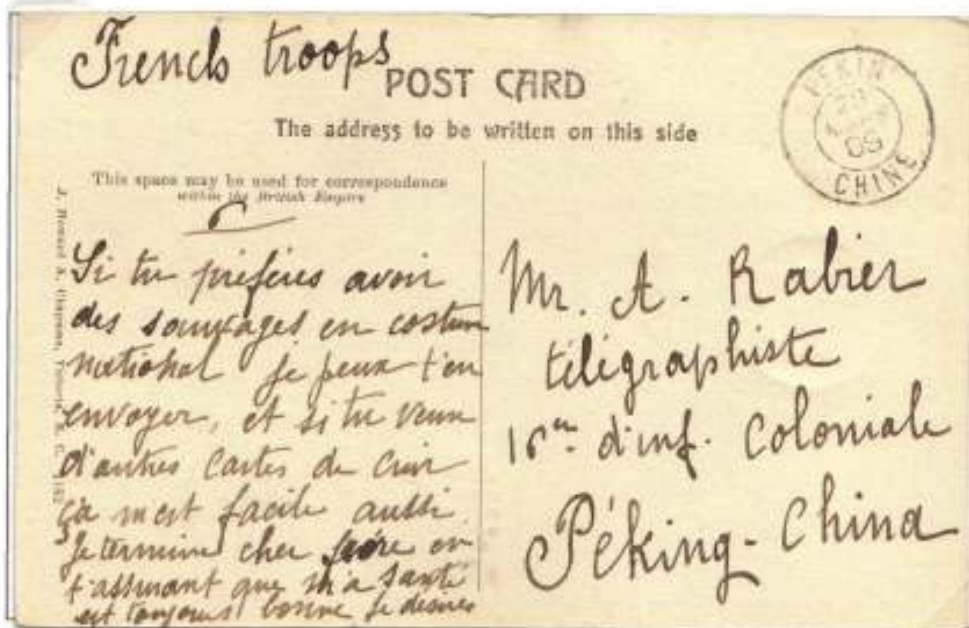 French troops
POST CARD
The address to be written on this side
PEKIN
CHINE
09
This space may be used for correspondence
within the British Empire
6
Si tu préfères avoir
des sauvages en costum
national je peux t'en
envoyer, et si tu veux
d'autres cartes de cuir
ça m'est facile aussi
Je termine cher frère en
t'assurant que m'a santé
est toujours bonne je desires
Mr. A. Rabier
télégraphiste
16em d'inf. Coloniale
Péking - China
J. Howard A. Chapman, Victoria, B. C.